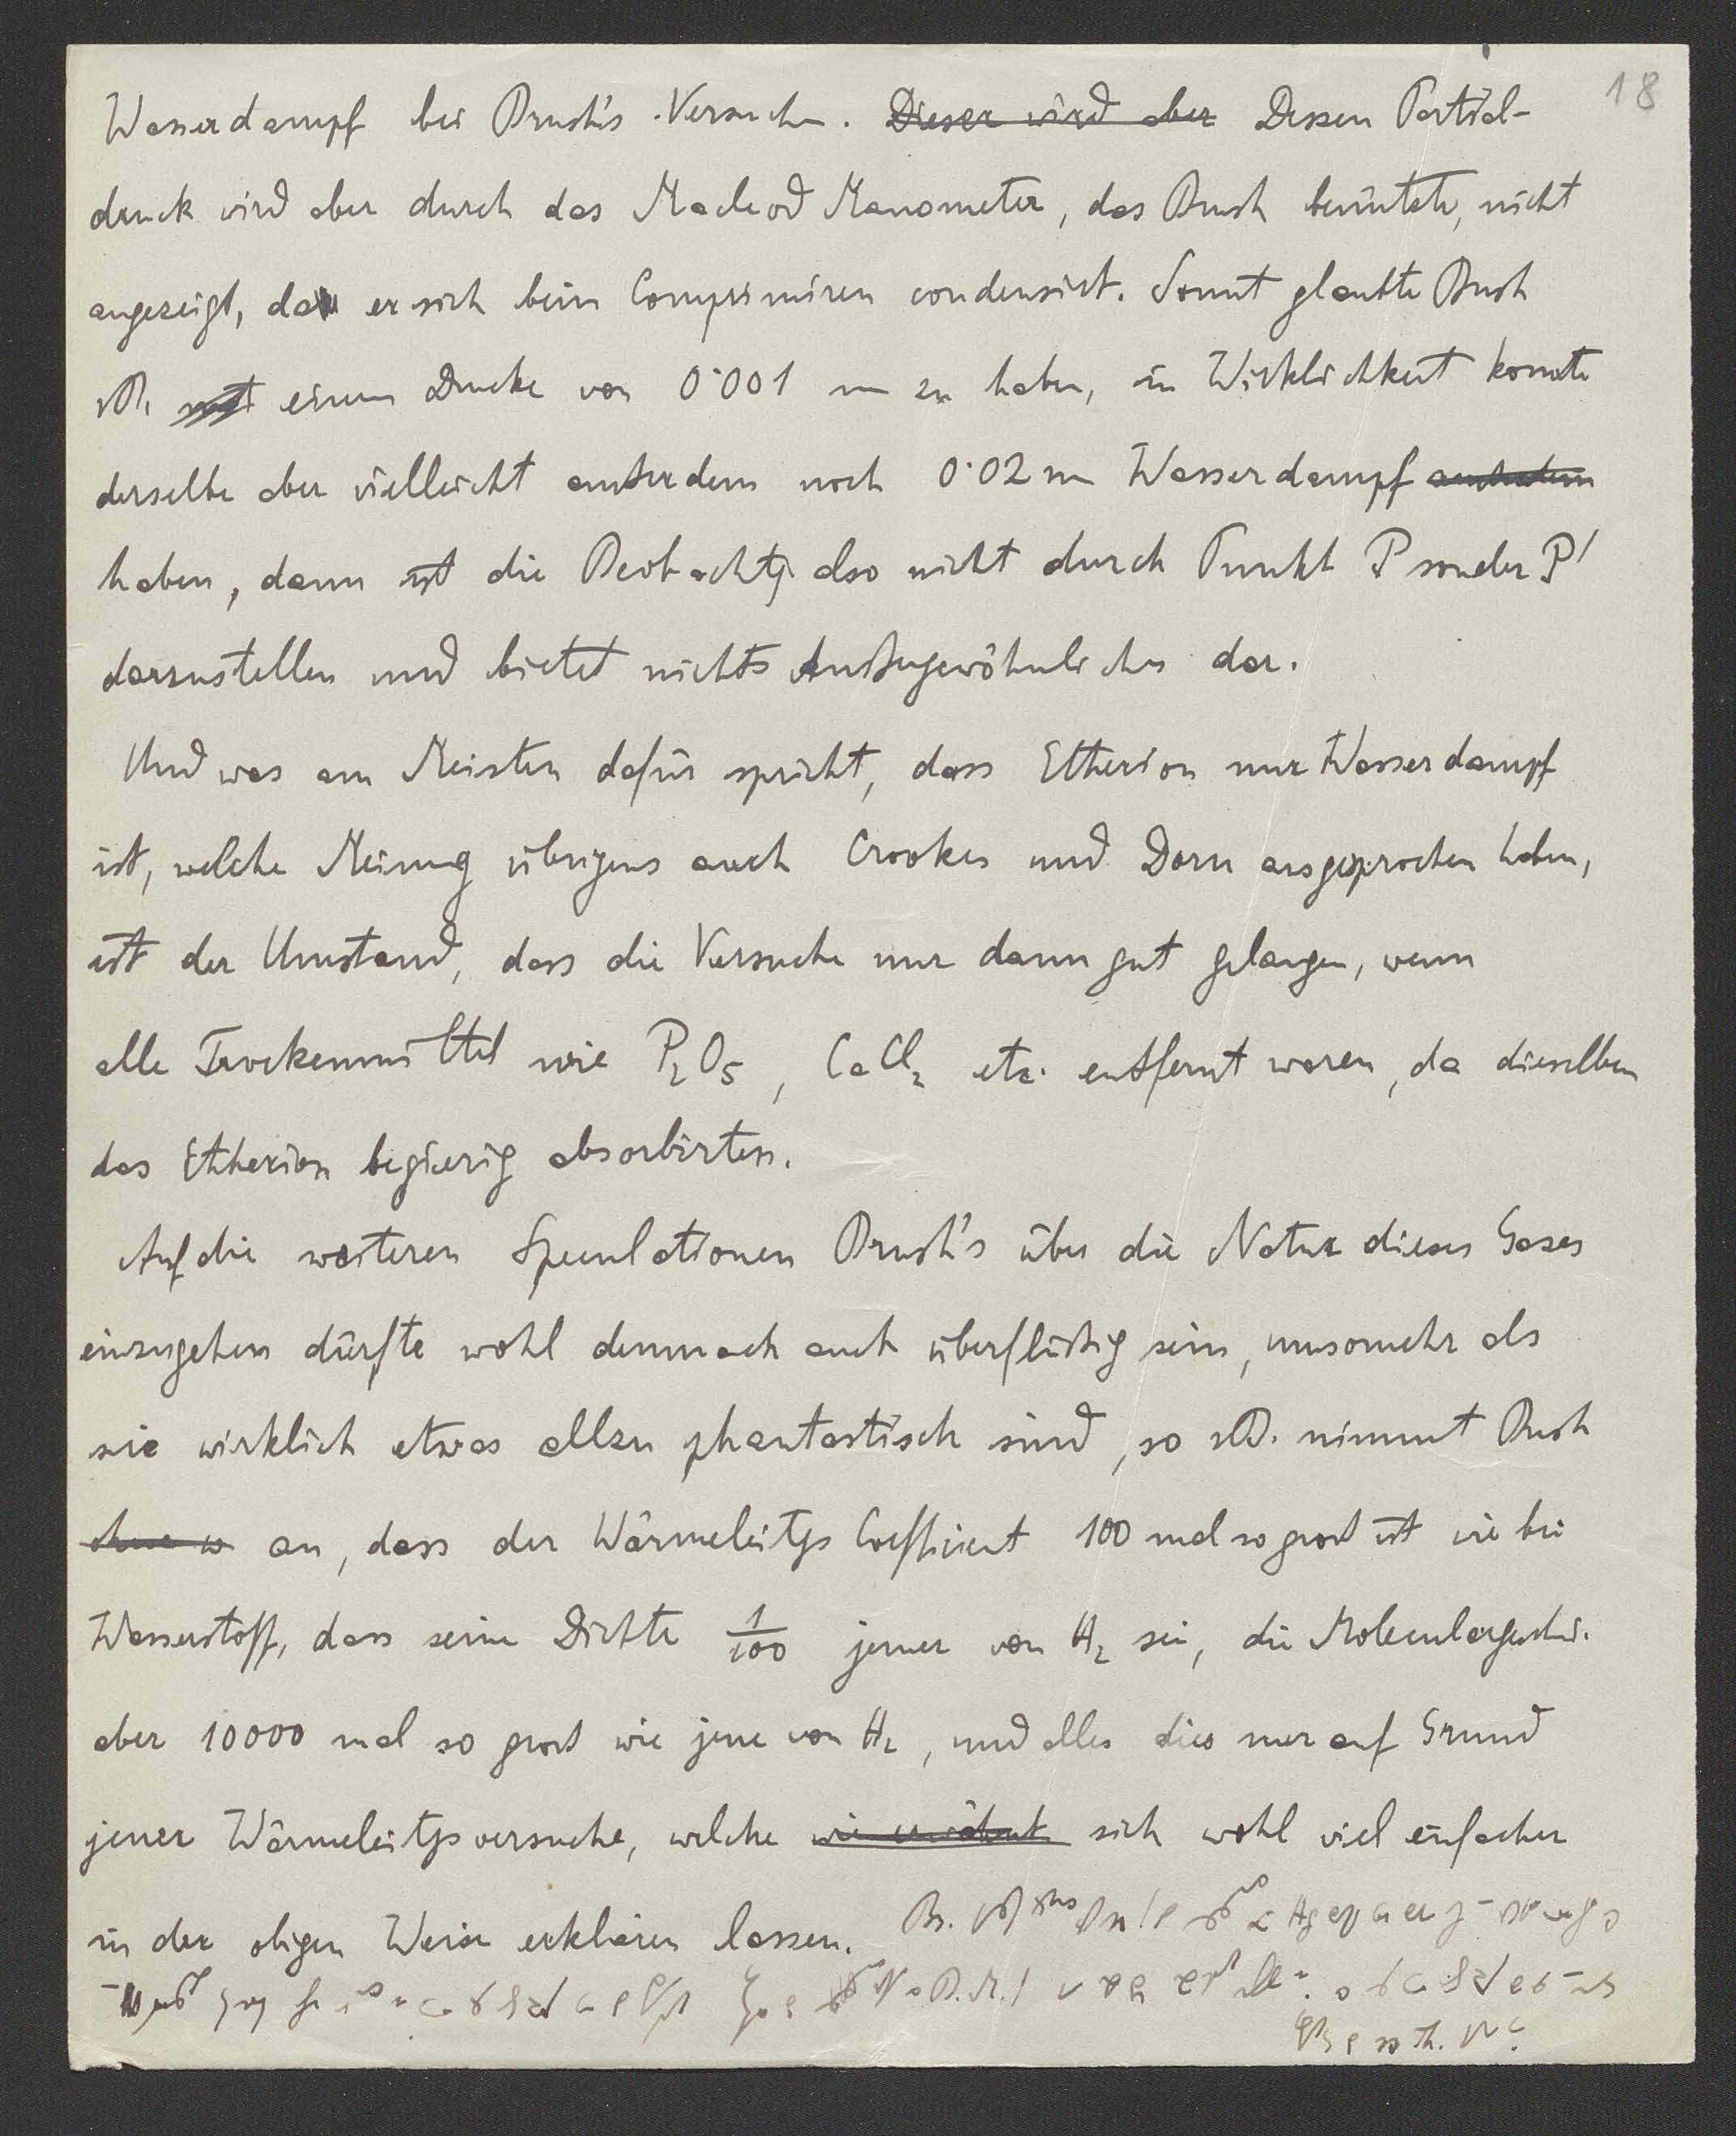 18
Wasserdampf bei Brush's Versuchen. Dieser wird aber Dessen Partial-
druck wird aber durch das Macleod Manometer, das Brush benützte, nicht
angezeigt, da er sich beim Comprimiren condensirt. Somit glaubte Brush
z.B. mit einem Drucke von 0·001 mm zu haben, in Wirklichkeit konnte
derselbe aber vielleicht außerdem noch 0·02 mm Wasserdampf außerdem
haben, dann ist die Beobachtg. also nicht durch Punkt P sonder P'
darzustellen und bietet nichts Außergewöhnliches dar.
Und was am Meisten dafür spricht, dass Etherion nur Wasserdampf
ist, welche Meinung übrigens auch Crookes und Dorn ausgesprochen haben,
ist der Umstand, dass die Versuche nur dann gut gelangen, wenn
alle Trockenmittel wie P₂O₅, CaCl₂ etc. entfernt waren, da dieselben
das Etherion begierig absorbirten.
Auf die weiteren Speculationen Brush's über die Natur dieses Gases
einzugehen dürfte wohl demnach auch überflüßig sein, umsomehr als
sie wirklich etwas allzu phantastisch sind, so z.B. nimmt Brush
ohne w an, dass der Wärmeleitgs Coefficient 100 mal so groß ist wie bei
Wasserstoff, dass seine Dichte 1/100 jener von H₂ sei, die Moleculargeschw.
aber 10000 mal so groß wie jene von H₂, und alles dies nur auf Grund
jener Wärmeleitgsversuche, welche wie erwähnt sich wohl viel einfacher
in der obigen Weise erklären lassen.